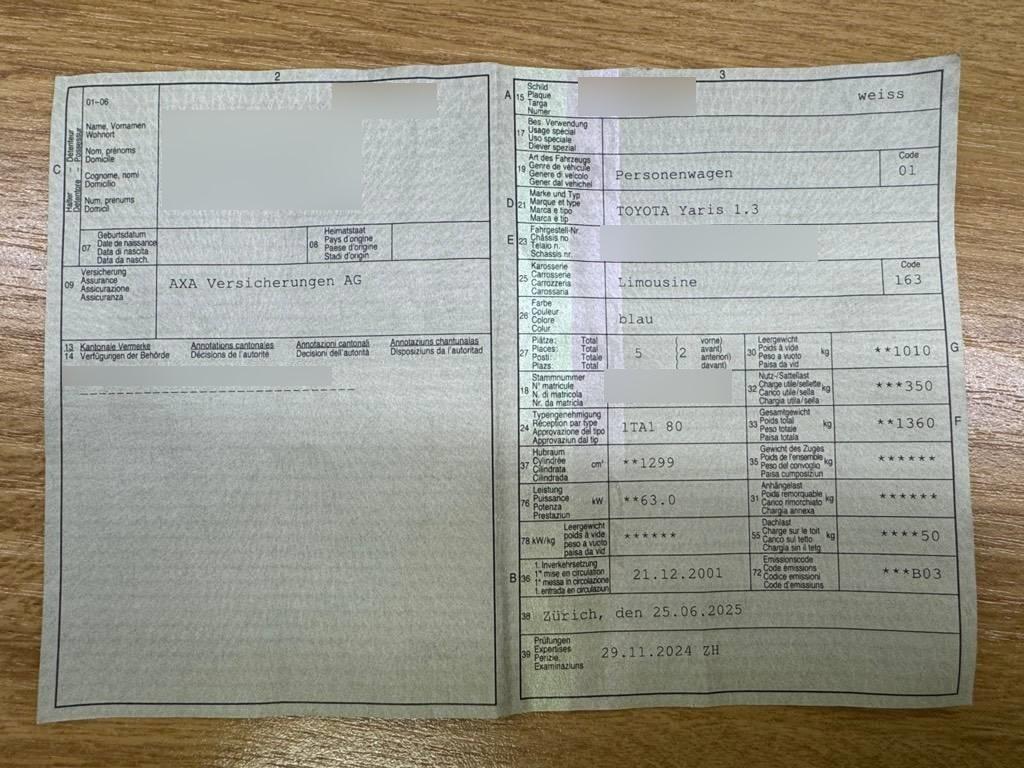 2
01-06
Halter - Détenteur
Detentore - Possessur
C
Name, Vornamen
Wohnort
Nom, prénoms
Domicile
Cognome, nomi
Domicilio
Num, prenums
Domicil
07
Geburtsdatum
Date de naissance
Data di nascita
Data da nasch.
08
Heimatstaat
Pays d'origine
Paese d'origine
Stadi d'origin
09
Versicherung
Assurance
Assicurazione
Assicuranza
AXA Versicherungen AG
13 Kantonale Vermerke Annotations cantonales Annotazioni cantonali Annotaziuns chantunalas
14 Verfügungen der Behörde Décisions de l'autorité Decisioni dell'autorità Disposiziuns da l'autoritad
3
A 15
Schild
Plaque
Targa
Numer
weiss
17
Bes. Verwendung
Usage spécial
Uso speciale
Diever spezial
19
Art des Fahrzeugs
Genre de véhicule
Genere di veicolo
Gener dal vehichel
Personenwagen
Code
01
D 21
Marke und Typ
Marque et type
Marca e tipo
Marca e tip
TOYOTA Yaris 1.3
E 23
Fahrgestell-Nr.
Châssis no
Telaio n.
Schassis nr.
25
Karosserie
Carrosserie
Carrozzeria
Carossaria
Limousine
Code
163
26
Farbe
Couleur
Colore
Colur
blau
27
Plätze: Total vorne)
Places: Total avant)
Posti: Totale anteriori)
Plazs: Total davant)
5 (2
30
Leergewicht
Poids à vide
Peso a vuoto
Paisa da vid
kg
**1010
G
18
Stammnummer
N° matricule
N. di matricola
Nr. da matricla
32
Nutz-/Sattellast
Charge utile/sellette
Carico utile/sella
Chargia utila/sella
kg
***350
24
Typengenehmigung
Réception par type
Approvazione del tipo
Approvaziun dal tip
1TA1 80
33
Gesamtgewicht
Poids total
Peso totale
Paisa totala
kg
**1360
F
37
Hubraum
Cylindrée
Cilindrata
Cilindrada
cm³
**1299
35
Gewicht des Zuges
Poids de l'ensemble
Peso del convoglio
Paisa cumposiziun
kg
******
76
Leistung
Puissance
Potenza
Prestaziun
kW
**63.0
31
Anhängelast
Poids remorquable
Carico rimorchiato
Chargia annexa
kg
******
78 kW/kg
Leergewicht
poids à vide
peso a vuoto
paisa da vid
******
55
Dachlast
Charge sur le toit
Carico sul tetto
Chargia sin il tetg
kg
****50
B 36
1. Inverkehrsetzung
1re mise en circulation
1a messa in circolazione
1. entrada en circulaziun
21.12.2001
72
Emissionscode
Code émissions
Codice emissioni
Code d'emissiuns
***B03
38
Zürich, den 25.06.2025
39
Prüfungen
Expertises
Perizie
Examinaziuns
29.11.2024 ZH